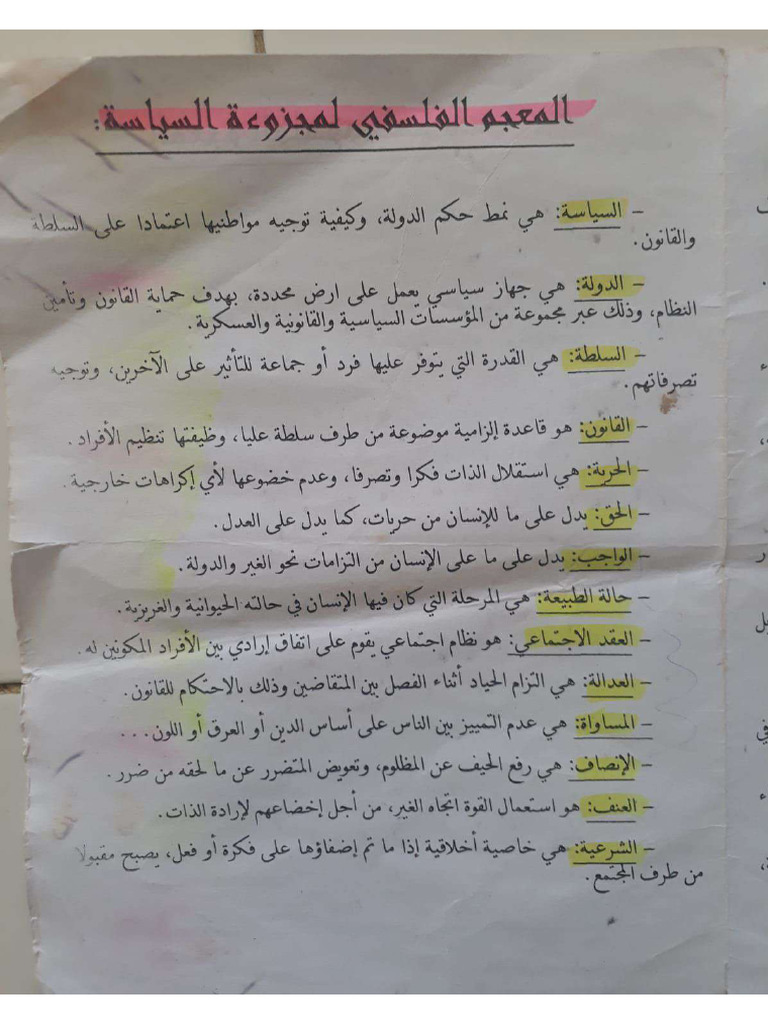 المعجم الفلسفي لمجزوءة السياسة:
- السياسة: هي نمط حكم الدولة، وكيفية توجيه مواطنيها اعتمادا على السلطة
والقانون.
- الدولة: هي جهاز سياسي يعمل على ارض محددة، بهدف حماية القانون وتأمين
النظام، وذلك عبر مجموعة من المؤسسات السياسية والقانونية والعسكرية.
- السلطة: هي القدرة التي يتوفر عليها فرد أو جماعة للتأثير على الآخرين، وتوجيه
تصرفاتهم.
- القانون: هو قاعدة إلزامية موضوعة من طرف سلطة عليا، وظيفتها تنظيم الأفراد.
- الحرية: هي استقلال الذات فكرا وتصرفا، وعدم خضوعها لأي إكراهات خارجية.
- الحق: يدل على ما للإنسان من حريات، كما يدل على العدل.
- الواجب: يدل على ما على الإنسان من التزامات نحو الغير والدولة.
- حالة الطبيعة: هي المرحلة التي كان فيها الإنسان في حالته الحيوانية والغريزية.
- العقد الاجتماعي: هو نظام اجتماعي يقوم على اتفاق إرادي بين الأفراد المكونين له.
- العدالة: هي التزام الحياد أثناء الفصل بين المتقاضين وذلك بالاحتكام للقانون.
- المساواة: هي عدم التمييز بين الناس على أساس الدين أو العرق أو اللون...
- الإنصاف: هي رفع الحيف عن المظلوم، وتعويض المتضرر عن ما لحقه من ضرر.
- العنف: هو استعمال القوة اتجاه الغير، من أجل إخضاعهم لإرادة الذات.
- الشرعية: هي خاصية أخلاقية إذا ما تم إضفاؤها على فكرة أو فعل، يصبح مقبولا
من طرف المجتمع.